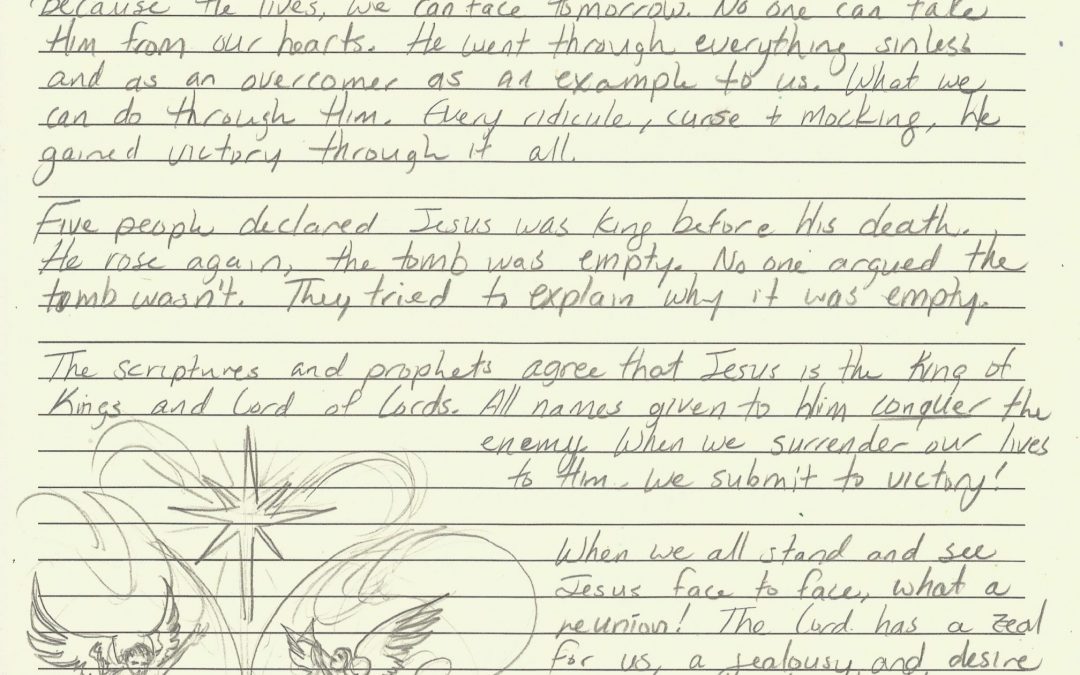 Because He lives, we can face tomorrow. No one can take
Him from our hearts. He went through everything sinless
and as an overcomer as an example to us. What we
can do through Him. Every ridicule, curse + mocking, He
gained victory through it all.
Five people declared Jesus was King before His death.
He rose again, the tomb was empty. No one argued the
tomb wasn't. They tried to explain why it was empty.
The scriptures and prophets agree that Jesus is the King of
Kings and Lord of Lords. All names given to Him conquer the
enemy. When we surrender our lives
to Him - we submit to victory!
When we all stand and see
Jesus face to face, what a
reunion! The Lord has a zeal
for us, a jealousy and desire